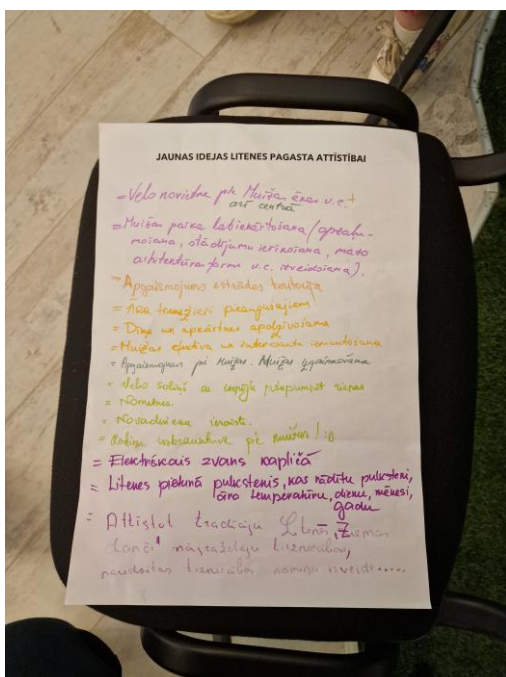 JAUNAS IDEJAS LITENES PAGASTA ATTĪSTĪBAI
= Velo novietne pie Muižas ēkas u.c. +
arī centrā
= Muižas parka labiekārtošana (
stādījumu ierīkošana, mazo
arhitektūras formu u.c. izveidošana).
- Apgaismojums estrādes teritorijā
= Āra trenažieri pieaugušajiem
= Dīķa un apkārtnes
= Muižas efektīva un interesanta izmantošana
= Apgaismojums pie Muižas. Muižas izgaismošana
= Velo soliņš ar iespēju piepumpēt riepas
= Nometnes.
= Novadnieku
= pie muižas! :D
= Elektriskais zvans kapličā
= Litenes pietura pulkstenis, kas rādītu pulksteni,
āra temperatūru, dienu, mēnesi,
gadu
= Attīstot tradīciju Litenē, Ziemas
danči mājražotāju tirdzniecību,
tirdzniecības izveidi.....